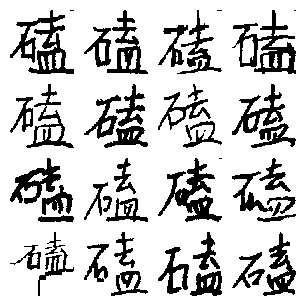 磕磕磕磕
磕磕磕磕
磕磕磕磕
磕磕磕磕